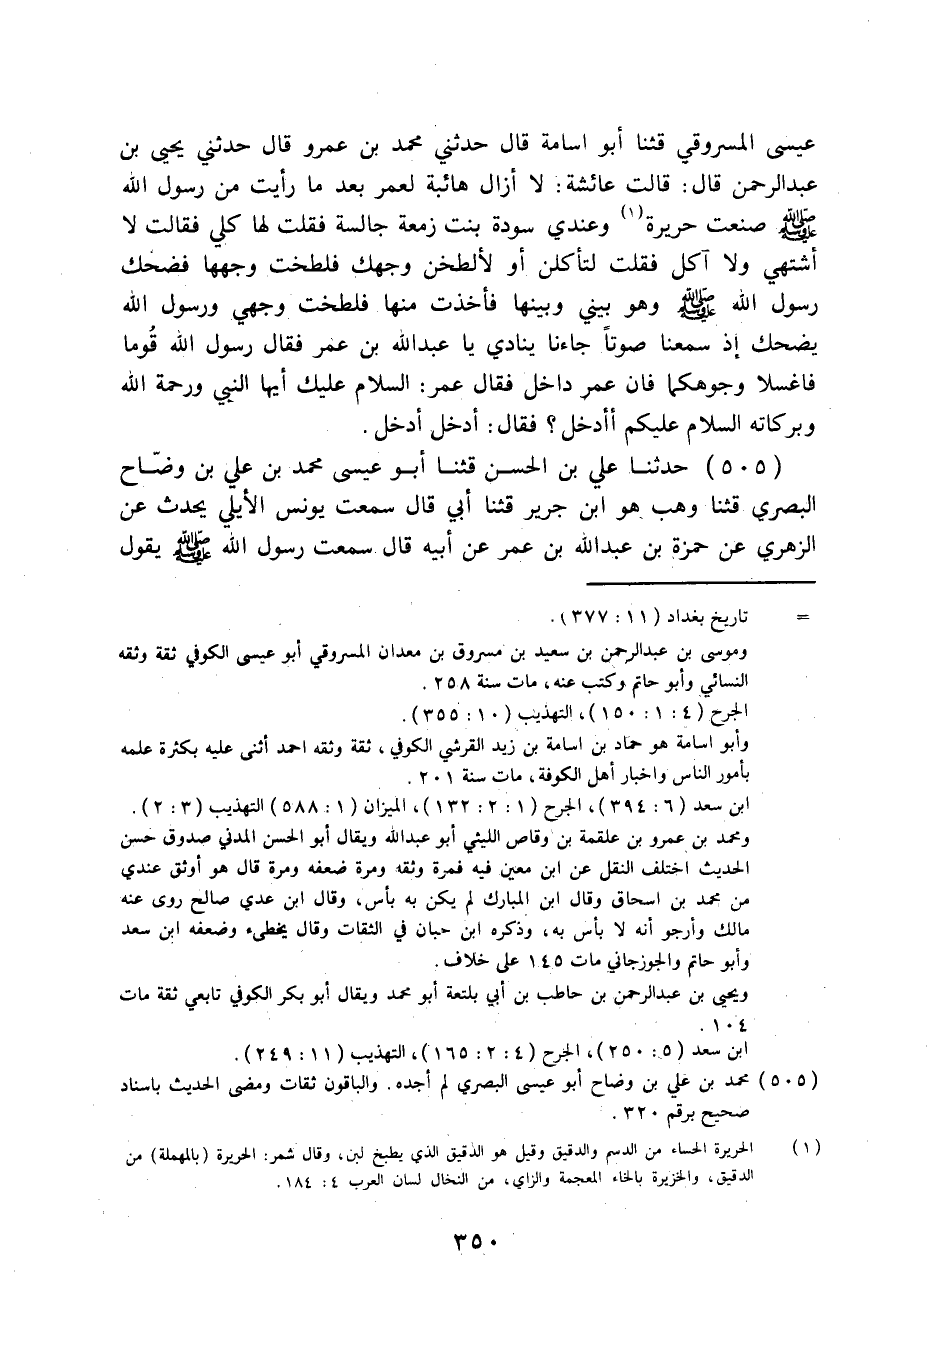 عيسى المسروقي قثنا أبو اسامة قال حدثني محمد بن عمرو قال حدثني يحيى بن
عبدالرحمن قال: قالت عائشة: لا أزال هائبة لعمر بعد ما رأيت من رسول الله
ﷺ صنعت حريرة(١) وعندي سودة بنت زمعة جالسة فقلت لها كلي فقالت لا
أشتهي ولا آكل فقلت لتأكلن أو لألطخن وجهك فلطخت وجهها فضحك
رسول الله ﷺ وهو بيني وبينها فأخذت منها فلطخت وجهي ورسول الله
يضحك إذ سمعنا صوتاً جاءنا ينادي يا عبدالله بن عمر فقال رسول الله قُوما
فاغسلا وجوهكما فان عمر داخل فقال عمر: السلام عليك أيها النبي ورحمة الله
وبركاته السلام عليكم أأدخل؟ فقال: أدخل أدخل.
(٥٠٥) حدثنا علي بن الحسن قثنا أبو عيسى محمد بن علي بن وضّاح
البصري قثنا وهب هو ابن جرير قثنا أبي قال سمعت يونس الأيلي يحدث عن
الزهري عن حمزة بن عبدالله بن عمر عن أبيه قال سمعت رسول الله ﷺ يقول
= تاريخ بغداد (١١: ٣٧٧).
وموسى بن عبدالرحمن بن سعيد بن مسروق بن معدان المسروقي أبو عيسى الكوفي ثقة وثقه
النسائي وأبو حاتم وكتب عنه، مات سنة ٢٥٨.
الجرح (٤: ١: ١٥٠)، التهذيب (١٠: ٣٥٥).
وأبو اسامة هو حماد بن اسامة بن زيد القرشي الكوفي، ثقة وثقه احمد أثنى عليه بكثرة علمه
بأمور الناس واخبار أهل الكوفة، مات سنة ٢٠١.
ابن سعد (٦: ٣٩٤)، الجرح (١: ٢: ١٣٢)، الميزان (١: ٥٨٨) التهذيب (٣: ٢).
ومحمد بن عمرو بن علقمة بن وقاص الليثي أبو عبدالله ويقال أبو الحسن المدني صدوق حسن
الحديث اختلف النقل عن ابن معين فيه فمرة وثقه ومرة ضعفه ومرة قال هو أوثق عندي
من محمد بن اسحاق وقال ابن المبارك لم يكن به بأس، وقال ابن عدي صالح روى عنه
مالك وأرجو أنه لا بأس به، وذكره ابن حبان في الثقات وقال يخطىء وضعفه ابن سعد
وأبو حاتم والجوزجاني مات ١٤٥ على خلاف.
ويحيى بن عبدالرحمن بن حاطب بن أبي بلتعة أبو محمد ويقال أبو بكر الكوفي تابعي ثقة مات
١٠٤.
ابن سعد (٥: ٢٥٠)، الجرح (٤: ٢: ١٦٥)، التهذيب (١١: ٢٤٩).
(٥٠٥) محمد بن علي بن وضاح أبو عيسى البصري لم أجده. والباقون ثقات ومضى الحديث باسناد
صحيح برقم ٣٢٠.
(١) الحريرة الحساء من الدسم والدقيق وقيل هو الدقيق الذي يطبخ لبن، وقال شمر: الحريرة (بالمهملة) من
الدقيق، والخزيرة بالخاء المعجمة والزاي، من النخال لسان العرب ٤: ١٨٤.
٣٥٠